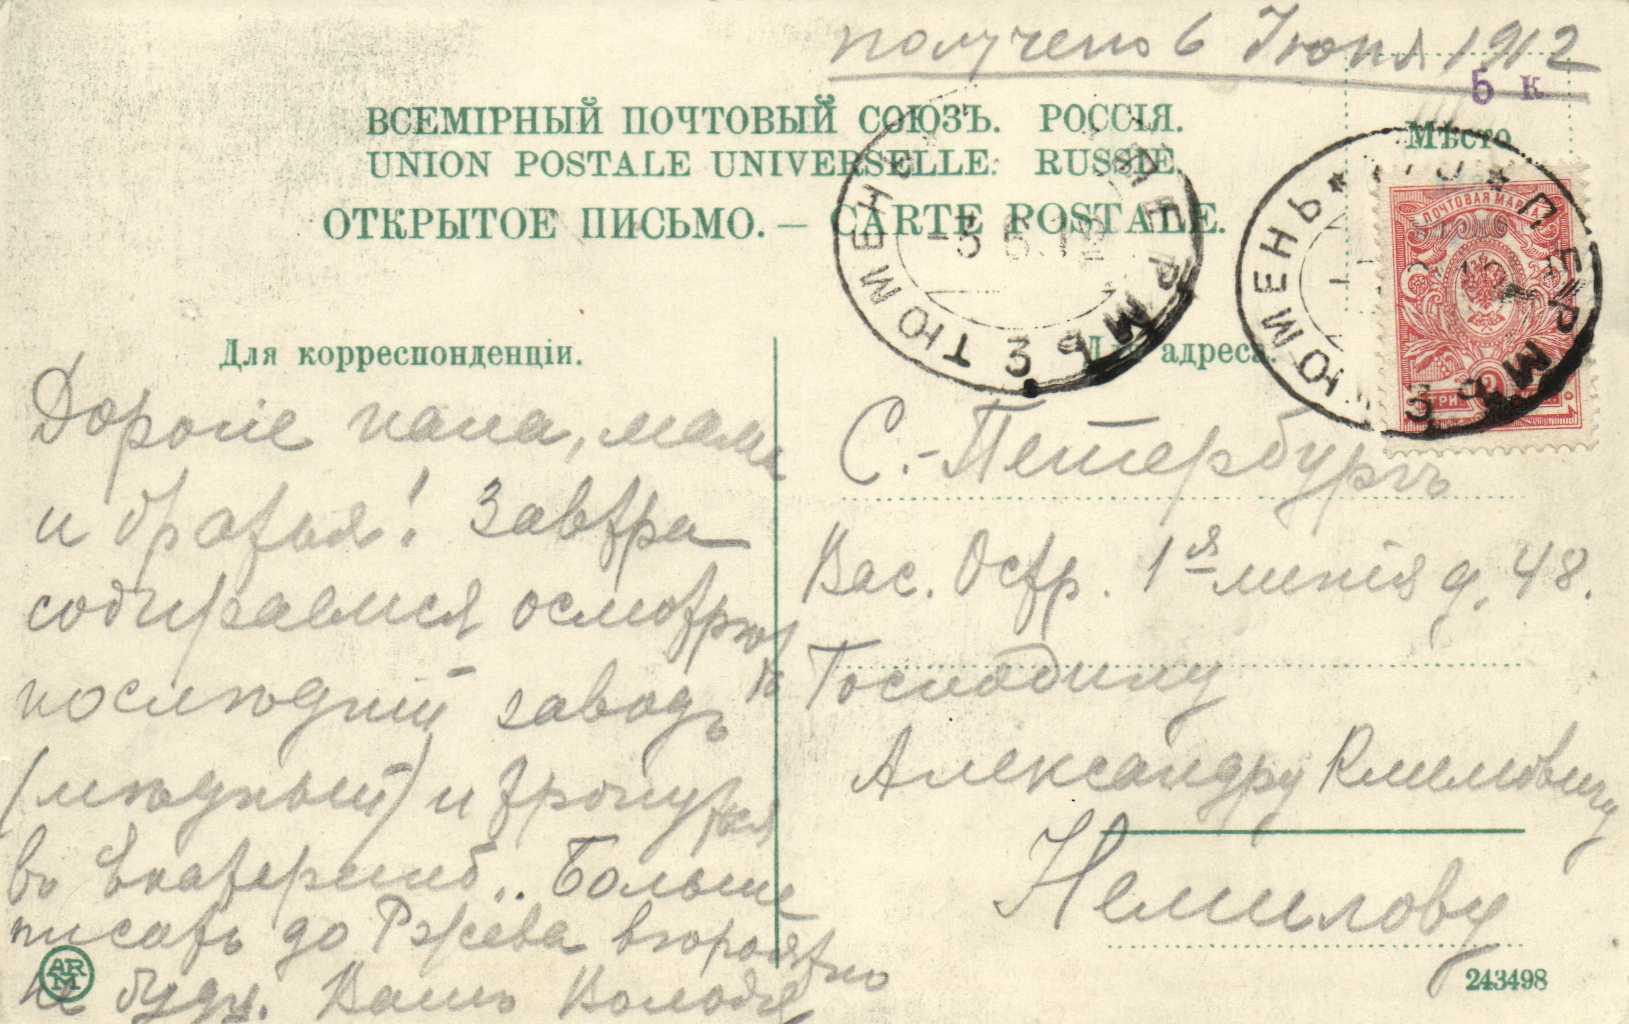 получено 6 Іюня 1912
5 к
ВСЕМІРНЫЙ ПОЧТОВЫЙ СОЮЗЪ. РОССІЯ.
UNION POSTALE UNIVERSELLE. RUSSIE.
ОТКРЫТОЕ ПИСЬМО. — CARTE POSTALE.
Мѣсто
ПОЧТОВАЯ МАРКА
ТРИ
ТЮМЕНЬ ПЕРМЬ 39
ТЮМЕНЬ * * ПЕРМЬ 39
Для корреспонденціи.
Дорогіе папа, мама
и братья! Завтра
собираемся осмотрѣть
послѣдній заводъ
(мѣдный) и тронуться
въ Екатеринб.. Больше
писать до Ржева вѣроятно
не буду. Вашъ Володя
Для адреса.
С.-Петербургъ
Вас. Остр. 1я линія д. 48.
Господину
Александру Климовичу
Немилову
ARM
243498